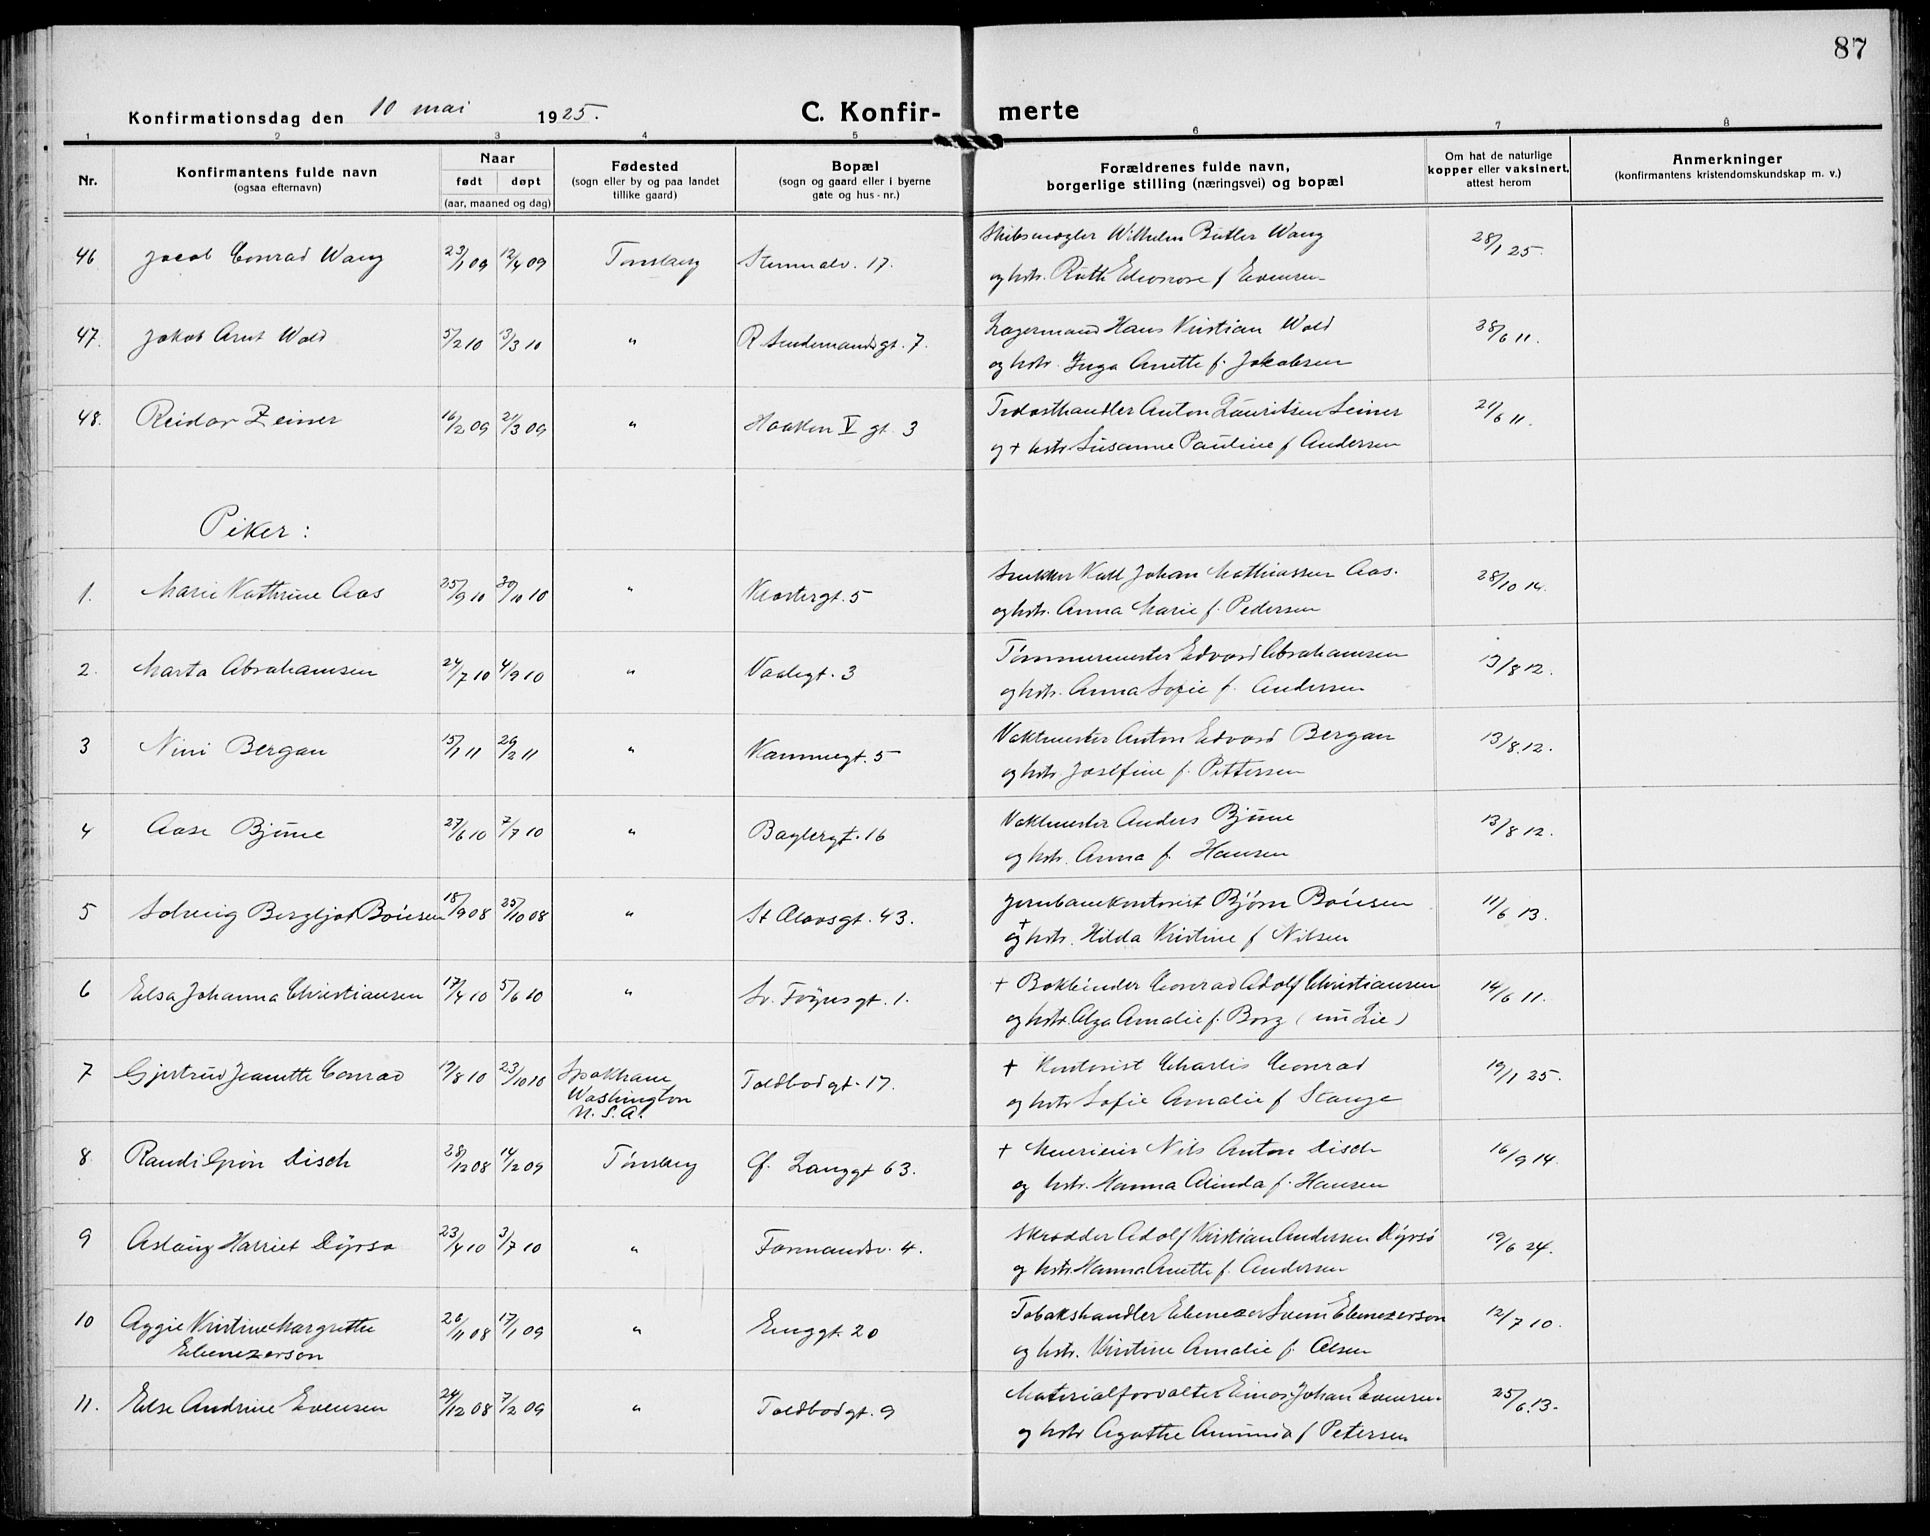 87
Konfirmationsdag den 10 mai 1925.
C. Konfirmerte
1 2 3 4 5 6 7 8
Nr.
Konfirmantens fulde navn
(ogsaa efternavn)
Naar
født døpt
(aar, maaned og dag)
Fødested
(sogn eller by og paa landet
tillike gaard)
Bopæl
(sogn og gaard eller i byerne
gate og hus-nr.)
Forældrenes fulde navn,
borgerlige stilling (næringsvei) og bopæl
Om hat de naturlige
kopper eller vaksinert,
attest herom
Anmerkninger
(konfirmantens kristendomskundskap m. v.)
46 Jacob Conrad Wang 23/1 09 12/4 09 Tønsberg 17. Skibsmægler Wilhelm Butler Wang 28/1 25.
og hstr. Ruth Eleonore f Evensen
47. Jakob Arnt Wold 5/2 10 13/3 10 " 7. Lagermand Hans Kristian Wold 28/6 11.
og hstr. Inga Anette f. Jakobsen
48. Reidar Zeiner 16/2 09 21/3 09 " Haakon V gt. 3 Trælasthandler Anton Lauritsen Seiner 21/6 11.
og + hstr. Susanne Pauline f Andersen
Piker:
1. Marie Kathrine Aas 25/9 10 30/10 10 " Klostergt. 5 Snekker Karl Johan Mathiassen Aas. 28/10 14.
og hstr. Anna Marie f. Pedersen
2. Marta Abrahamsen 24/7 10 4/9 10 " Vadlegt. 3 Tømmermester Edvard Abrahamsen 13/8 12.
og hstr. Anna Sofie f. Andersen
3 Nini Bergan 15/1 11 26/2 11 " Kammegt. 5 Vaktmester Anton Edvard Bergan 13/8.12.
og hstr. Josefine f. Pettersen
4 Aase Bjune 27/6 10 7/7 10 " Baglergt. 16 Vaktmester Anders Bjune 13/8 12.
og hstr. Anna f. Hansen
5 Solveig Bergljot Boiesen 18/9 08 25/10 08 " St Olavsgt. 43. Jernbanekontorist Bjørn Boiesen 11/6 13.
+ og hstr. Hilda Kristine f Nilsen
6 Elsa Johanna Christiansen 17/4 10 5/6 10 " Sv. Föynsgt. 1. + Bokbinder Conrad Adolf Christiansen 14/6 11.
og hstr. Olga Amalie f. Borg (nu Lie)
7 Gjertrud Jeanette Conrad 19/8 10 23/10 10 Spokhane Toldbodgt. 17. + Kontorist Charlis Conrad 19/1 25.
Washington
U.S.A.
og hstr Sofie Amalie f Stange
8. Randi Grön Disch 28/12 08 14/2 09 Tønsberg Langgt 63. + Nils Anton Disch 16/9 14.
og hstr. Hanna Alinda f. Hansen
9 Aslaug Harriet Dyrsø 23/4 10 3/7 10 " 4. Skrædder Adolf Kristian Andersen Dyrsø 19/6 24.
og hstr. Hanna Anette f. Andersen
10 Aggie Kristine Margrethe 26/11 08 17/1 09 " Enggt. 20 Tobakshandler Ebenezer Svein Ebenezerson 12/7 10.
Ebenezerson
og hstr. Kristine Amalie f. Olsen
11. Else Andrine Evensen 24/12 08 7/2 09 " Toldbodgt. 9 Materialforvalter Einar Johan Evensen 25/6.13.
og hstr Agathe Amunda f Petersen